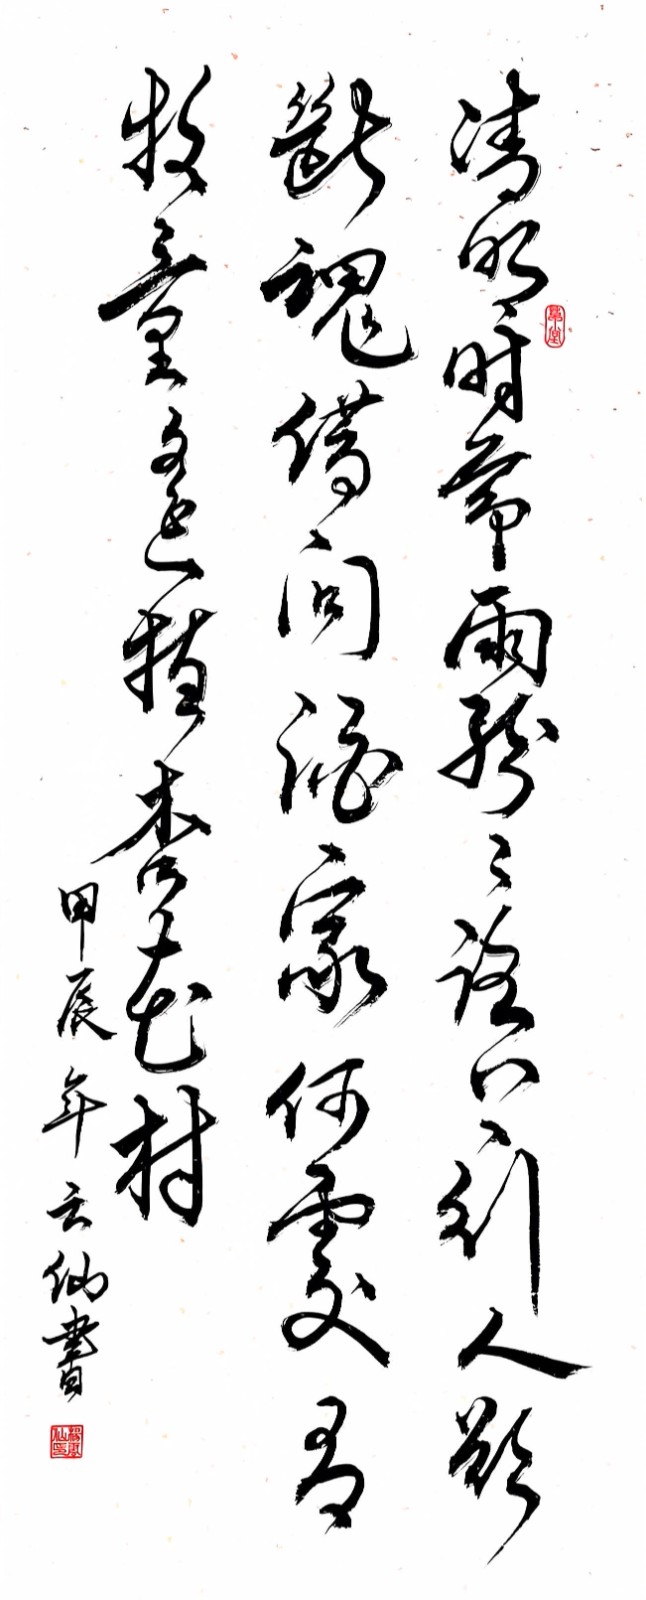 清明时節雨紛々路上行人欲
斷魂借问酒家何處有
牧童遥指杏花村
甲辰年云仙書